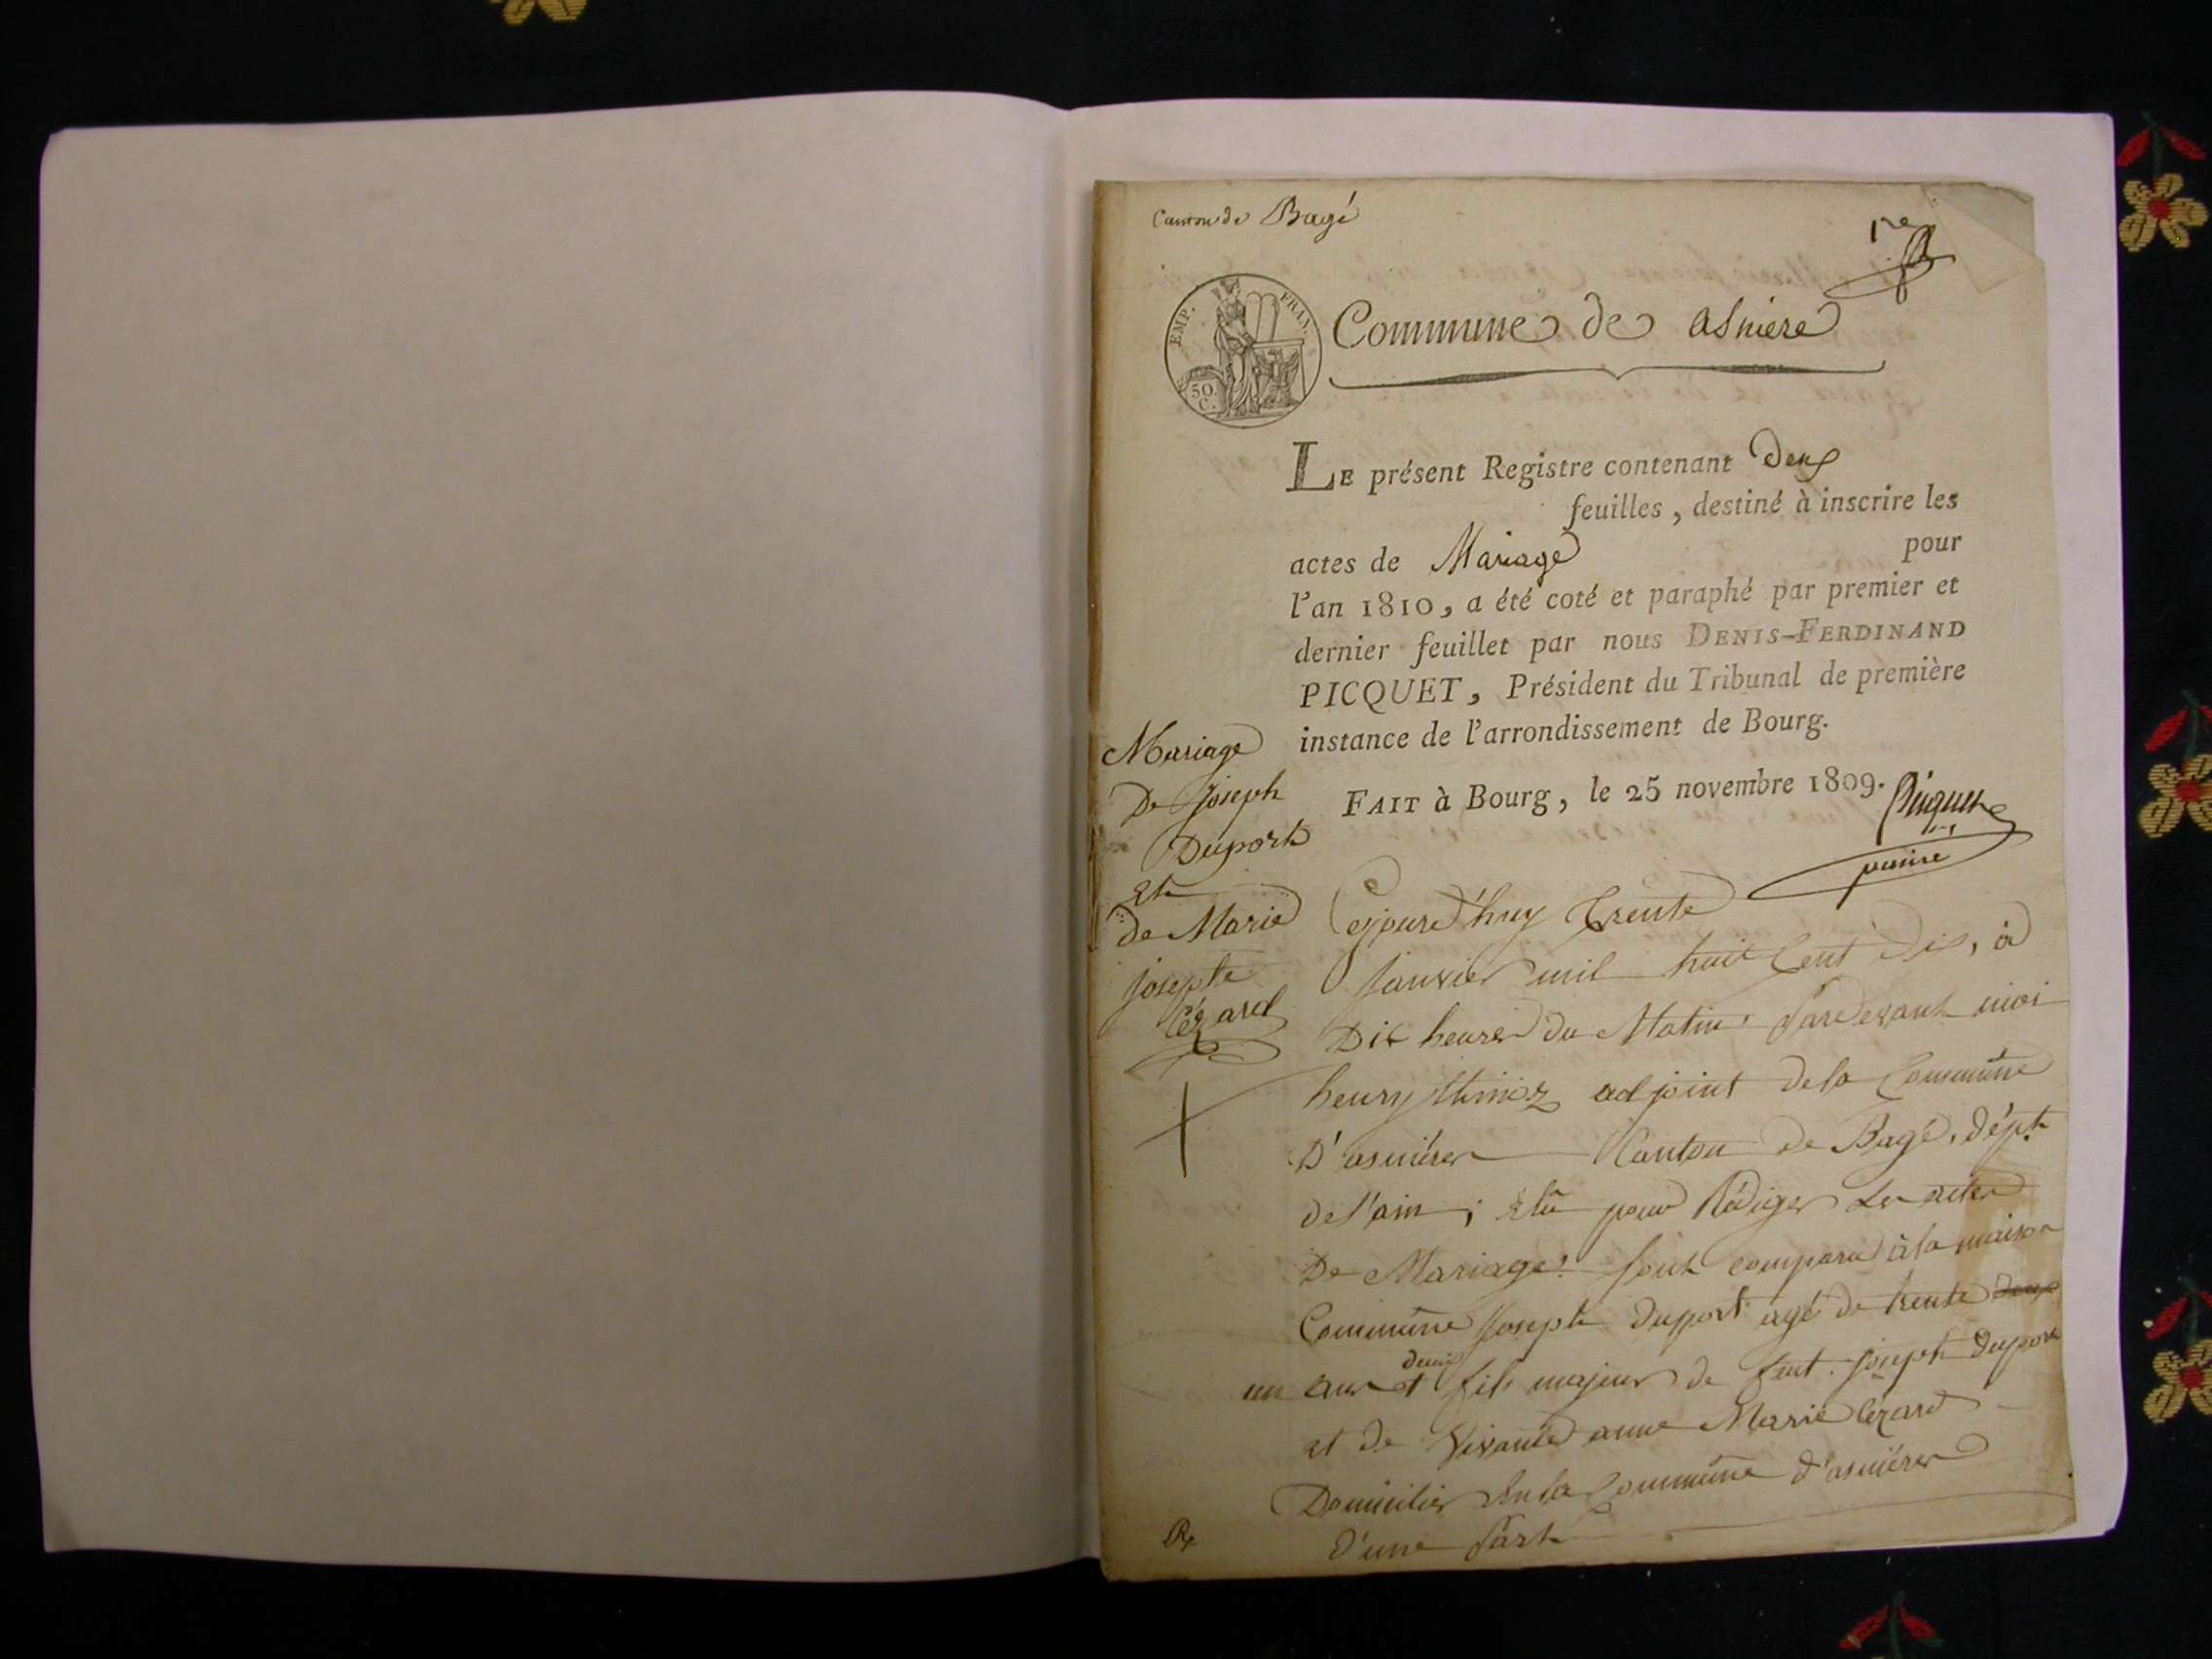 Canton de Bagé
1re
EMP. FRAN.
50 C.
Commune de asniere
LE présent Registre contenant deux
feuilles, destiné à inscrire les
actes de Mariage pour
l'an 1810, a été coté et paraphé par premier et
dernier feuillet par nous DENIS-FERDINAND
PICQUET, Président du Tribunal de première
instance de l'arrondissement de Bourg.
FAIT à Bourg, le 25 novembre 1809.
Picquet
Mariage
De Joseph
Duport
Et
de Marie
Josephe
Cézard
Cejourd'huy trente
Janvier mil huit Cent dix, à
Dix heures du Matin pardevant moi
henry adjoint de la Commune
D'asnières Canton de Bagé, dépt
de l'ain ; Elu pour Rédiger Les actes
De Mariage. sont comparu à la maison
Commune Joseph duport agé de trente deux
un ans et demi fils majeur de feut joseph duport
et de Vivante anne Marie Cézard
Domicilier En la Commune d'asnières
D'une part